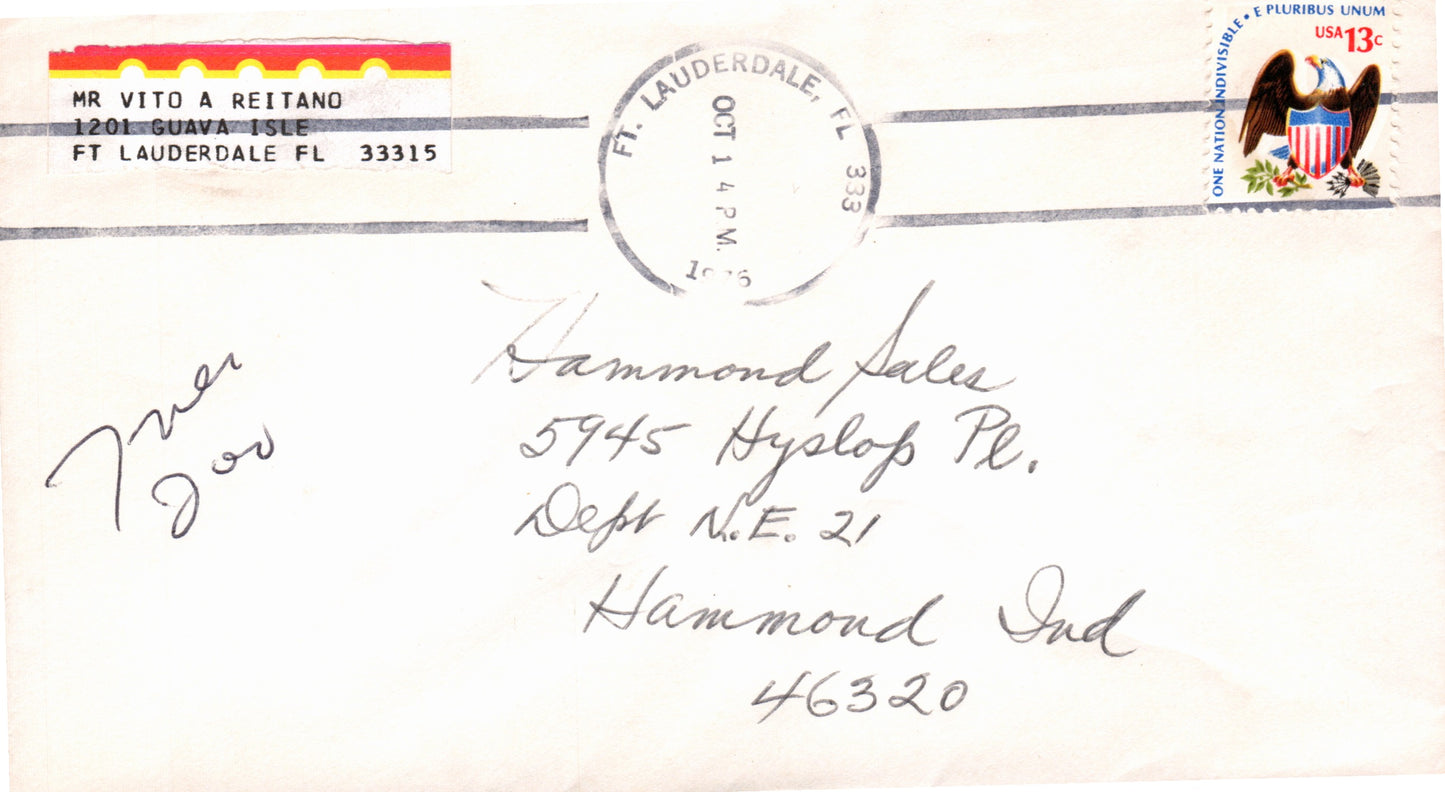 MR VITO A REITANO
1201 GUAVA ISLE
FT LAUDERDALE FL 33315
FT. LAUDERDALE, FL 333
OCT 14 PM
ONE NATION INDIVISIBLE • E PLURIBUS UNUM
USA 13c
Hammond Sales
5945 Hyslop Pl.
Dept N.E. 21
Hammond Ind
46320